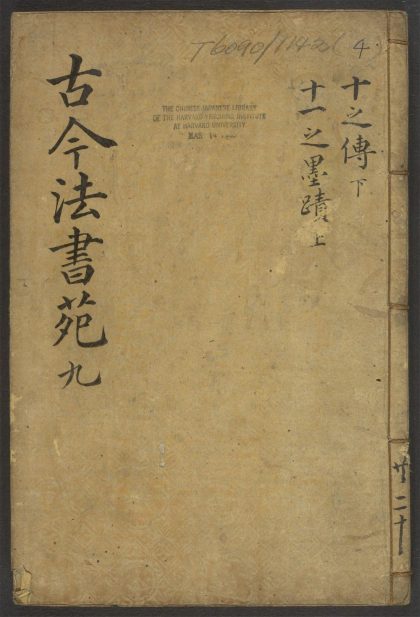 T6090/1142 (4)
THE CHINESE-JAPANESE LIBRARY
OF THE HARVARD-YENCHING INSTITUTE
AT HARVARD UNIVERSITY
MAR 14
十之傳下
十一之墨蹟上
古今法書苑九
廿二十